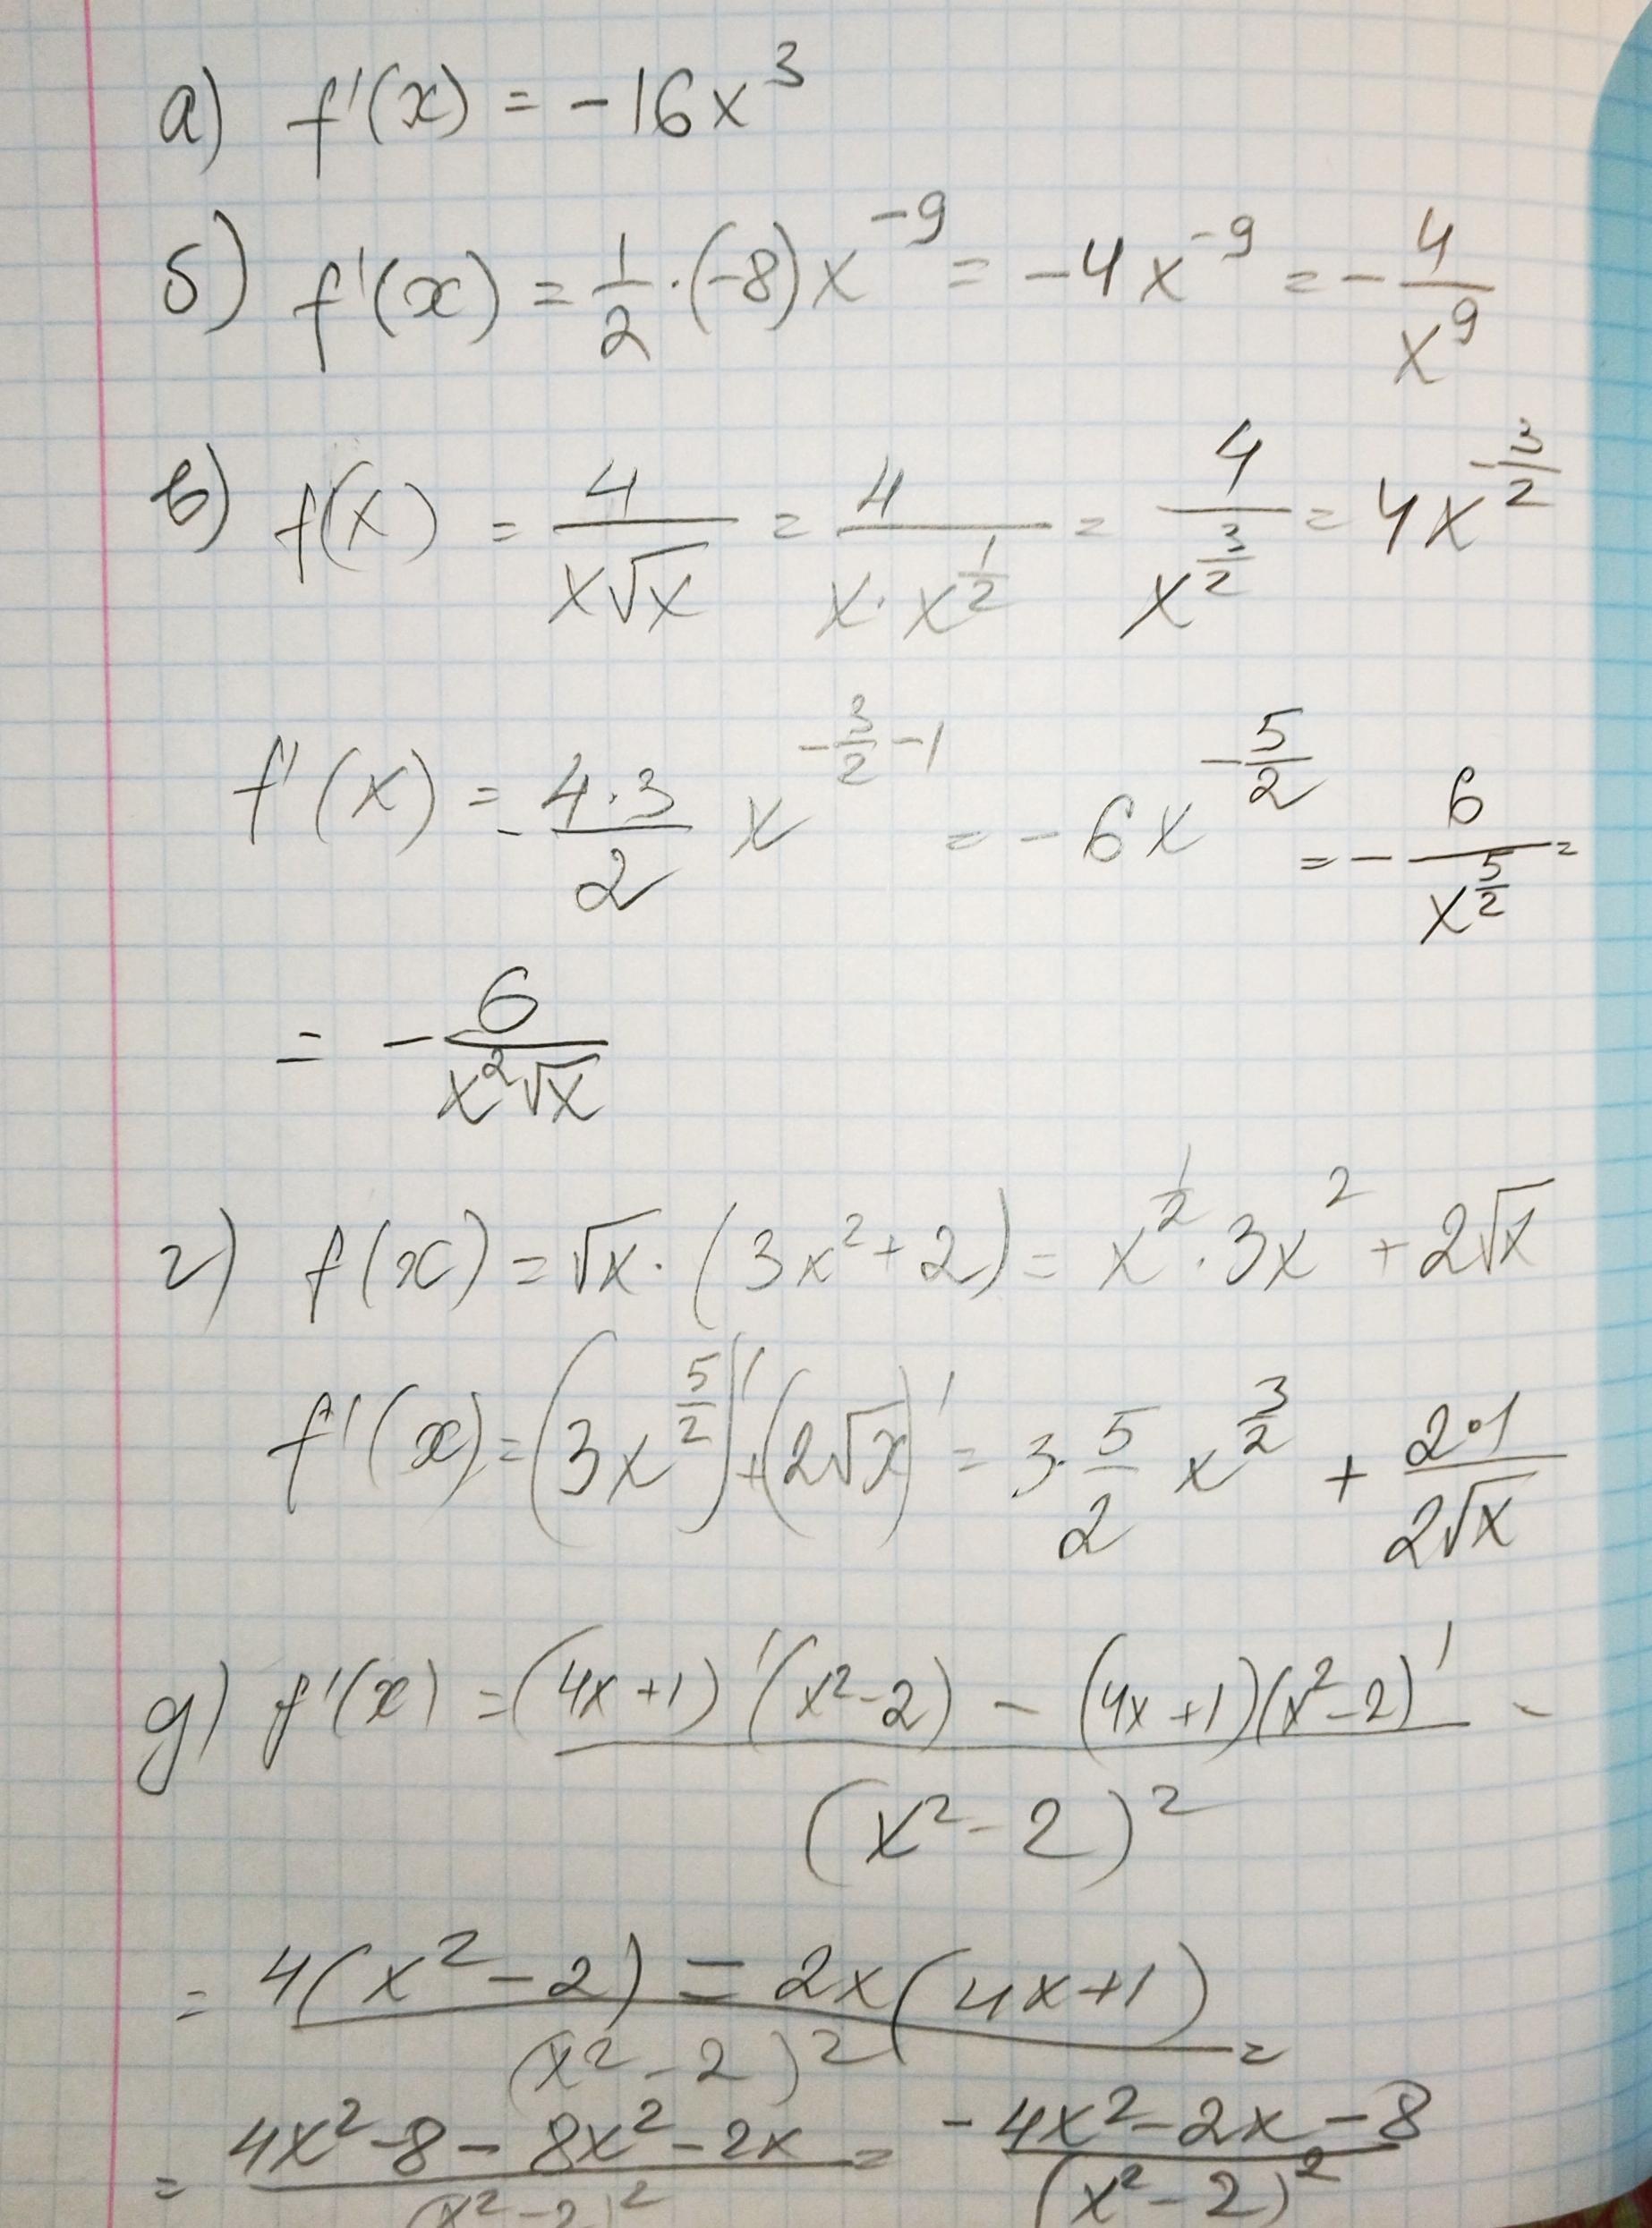 а) f'(x) = -16x³
б) f'(x) = 1/2 · (-8)x⁻⁹ = -4x⁻⁹ = -4/x⁹
в) f(x) = 4/(x√x) = 4/(x · x^(1/2)) = 4/x^(3/2) = 4x^(-3/2)
f'(x) = -(4·3)/2 x^(-3/2-1) = -6x^(-5/2) = -6/x^(5/2) =
= -6/(x²√x)
г) f(x) = √x · (3x²+2) = x^(1/2) · 3x² + 2√x
f'(x) = (3x^(5/2))' + (2√x)' = 3 · 5/2 x^(3/2) + (2·1)/(2√x)
д) f'(x) = ((4x+1)'(x²-2) - (4x+1)(x²-2)')/(x²-2)² -
= (4(x²-2) = 2x(4x+1))/(x²-2)² =
= (4x²-8-8x²-2x)/(x²-2)² = (-4x²-2x-8)/(x²-2)²